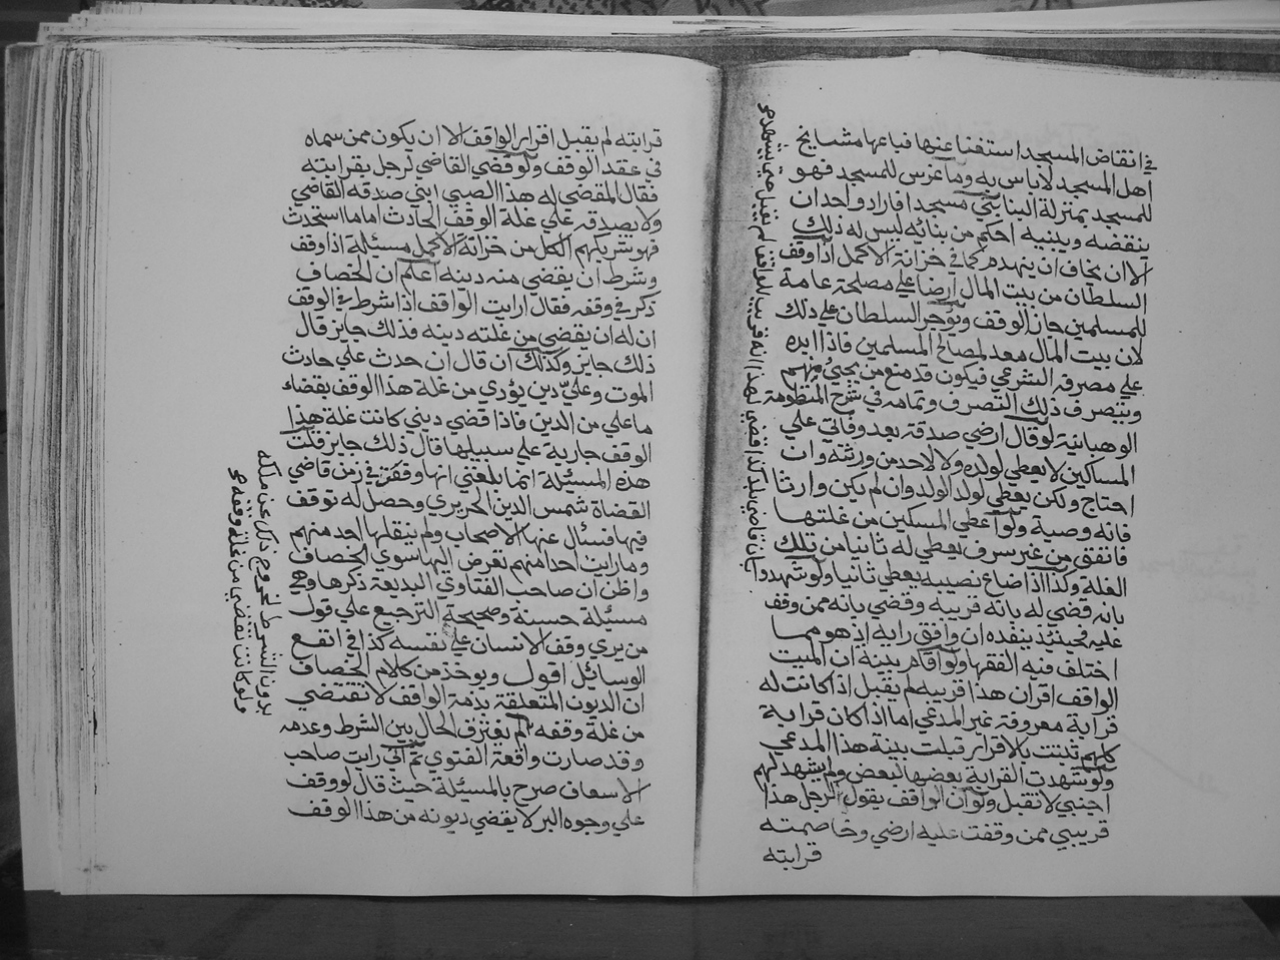 في انقاض المسجد استغنا عنها فباعها مشايخ
اهل المسجد لا باس به وما غرس للمسجد فهو
للمسجد بمنزلة البنا بني مسجدا فاراد واحد ان
ينقضه ويبنيه احكم من بنائه ليس له ذلك
الا ان يخاف ان ينهدم كما في خزانة الاكمل اذا وقف
السلطان من بيت المال ارضا علي مصلحة عامة
للمسلمين جاز الوقف ويؤجر السلطان علي ذلك
لان بيت المال معد لمصالح المسلمين فاذا ابده
علي مصرفه الشرعي فيكون قد منع من يجيئ منهم
ويتصرف ذلك التصرف وتمامه في شرح المنظومة
الوهبانية لو قال ارضي صدقة بعد وفاتي علي
المساكين لا يعطي لولده ولا لاحد من ورثته وان
احتاج ولكن يعطي لولد الولد وان لم يكن وارثا
فانه وصية ولو اعطي المسكين من غلتها
فانفق من غير سرف يعطي له ثانيا من تلك
الغلة وكذا اذا ضاع نصيبه يعطي ثانيا ولو شهدوا
بان قاضي بلد كذا قضي لهذا انه قريب الواقف لم يقبل حتي يشهدوا
بانه قضي له بانه قريبه وقضي بانه ممن وقف
عليه فحينئذ ينفده ان وافق رايه اذ هو مما
اختلف فيه الفقها ولو اقام بينة ان الميت
الواقف اقر ان هذا قريبه لم يقبل اذا كانت له
قرابة معروفة غير المدعي اما اذا كان قرابة
كلهم تثبت بالاقرار قبلت بينة هذا المدعي
ولو شهدت القرابة بعضها لبعض ولم يشهد لهم
اجنبي لا تقبل ولو ان الواقف يقول لرجل هذا
قريبي ممن وقفت عليه ارضي وخاصمته
قرابته
قرابته لم يقبل اقرار الواقف الا ان يكون ممن سماه
في عقد الوقف ولو قضي القاضي لرجل بقرابته
فقال المقضي له هذا الصبي ابني صدقه القاضي
ولا يصدقه علي غلة الوقف الحادث اما ما استحدث
فهو شريكهم الكل من خزانة الاكمل مسئلة اذا وقف
وشرط ان يقضي منه دينه اعلم ان الخصاف
ذكر في وقفه فقال ارايت الواقف اذا شرط في الوقف
ان له ان يقضي من غلته دينه فذلك جايز قال
ذلك جايز وكذلك ان قال ان حدث علي حادث
الموت وعليّ دين يؤدي من غلة هذا الوقف بقضاء
ما علي من الدين فاذا قضي ديني كانت غلة هذا
الوقف جارية علي سبيلها قال ذلك جايز قلت
هذه المسئلة انما بلغني انها وقفت في زمن قاضي
القضاة شمس الدين الحريري وحصل له توقف
فيها فسئال عنها الاصحاب ولم ينقلها احد منهم
وما رايت احدا منهم تعرض اليها سوي الخصاف
واظن ان صاحب الفتاوي البديعة ذكرها وهي
مسئلة حسنة وصحيحة الترجيع علي قول
من يري وقف الانسان علي نفسه كذا في انفع
الوسائل اقول ويوخذ من كلام الخصاف
ان الديون المتعلقة بذمة الواقف لا تقتضي
من غلة وقفه لم يفترق الحال بين الشرط وعدمه
وقد صارت واقعة الفتوي ثم اني رايت صاحب
الاسعاف صرح بالمسئلة حيث قال لو وقف
علي وجوه البر لا يقضي ديونه من هذا الوقف
بدون الشرط لخروج ذلك عن ملكه
ولو كانت تقتضي من غلة وقفه